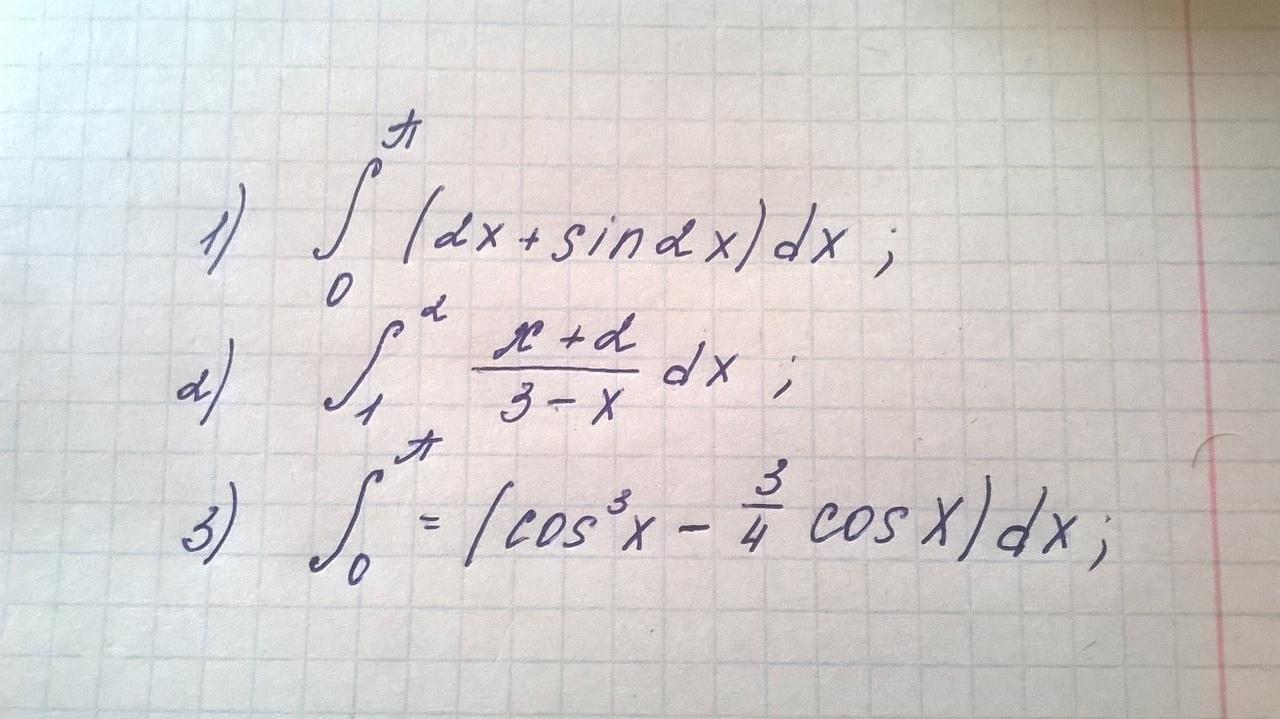 1) ∫₀^π (2x + sin 2x) dx ;
2) ∫₁² (x + 2)/(3 - x) dx ;
3) ∫₀^π = (cos³x - 3/4 cos x) dx ;